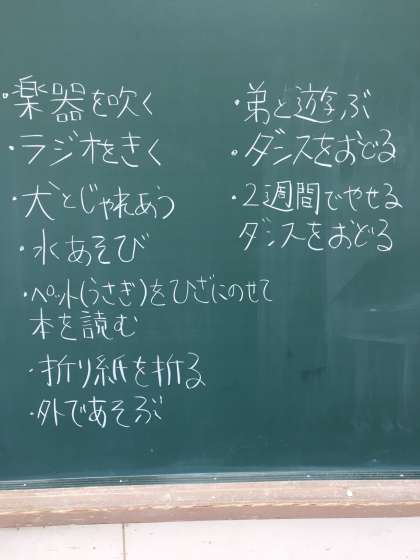 ・楽器を吹く
・ラジオをきく
・犬とじゃれあう
・水あそび
・ペット(うさぎ)をひざにのせて
本を読む
・折り紙を折る
・外であそぶ
・弟と遊ぶ
・ダンスをおどる
・2週間でやせる
ダンスをおどる